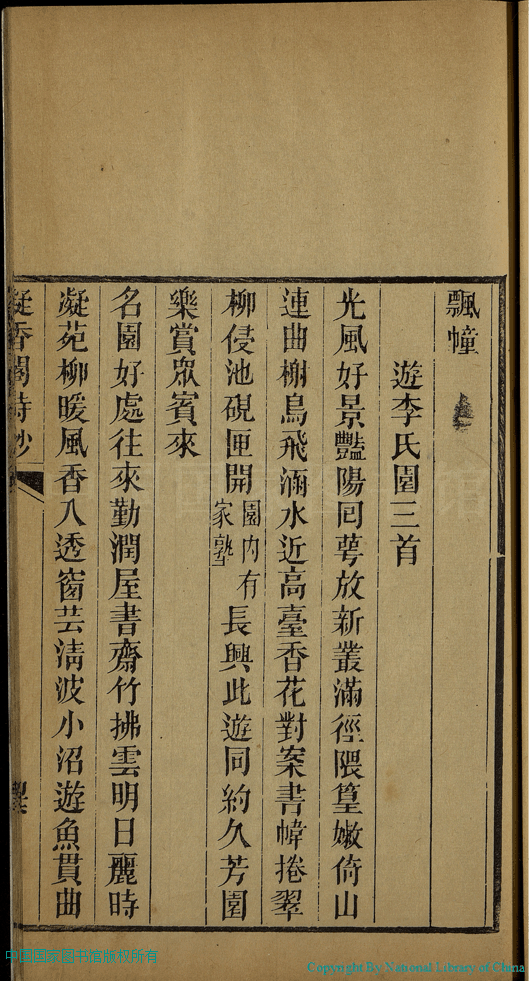 飄幢
遊李氏園三首
光風好景豔陽回萼放新叢滿徑隈篁嫩倚山
連曲榭鳥飛瀰水近高臺香花對案書幃捲翠
柳侵池硯匣開園內有家塾長興此遊同約久芳園
樂賞眾賓來
名園好處往來勤潤屋書齋竹拂雲明日麗時
凝苑柳暖風香入透窗芸淸波小沼遊魚貫曲
凝香閣詩鈔
中国国家图书馆版权所有
Copyright By National Library of China